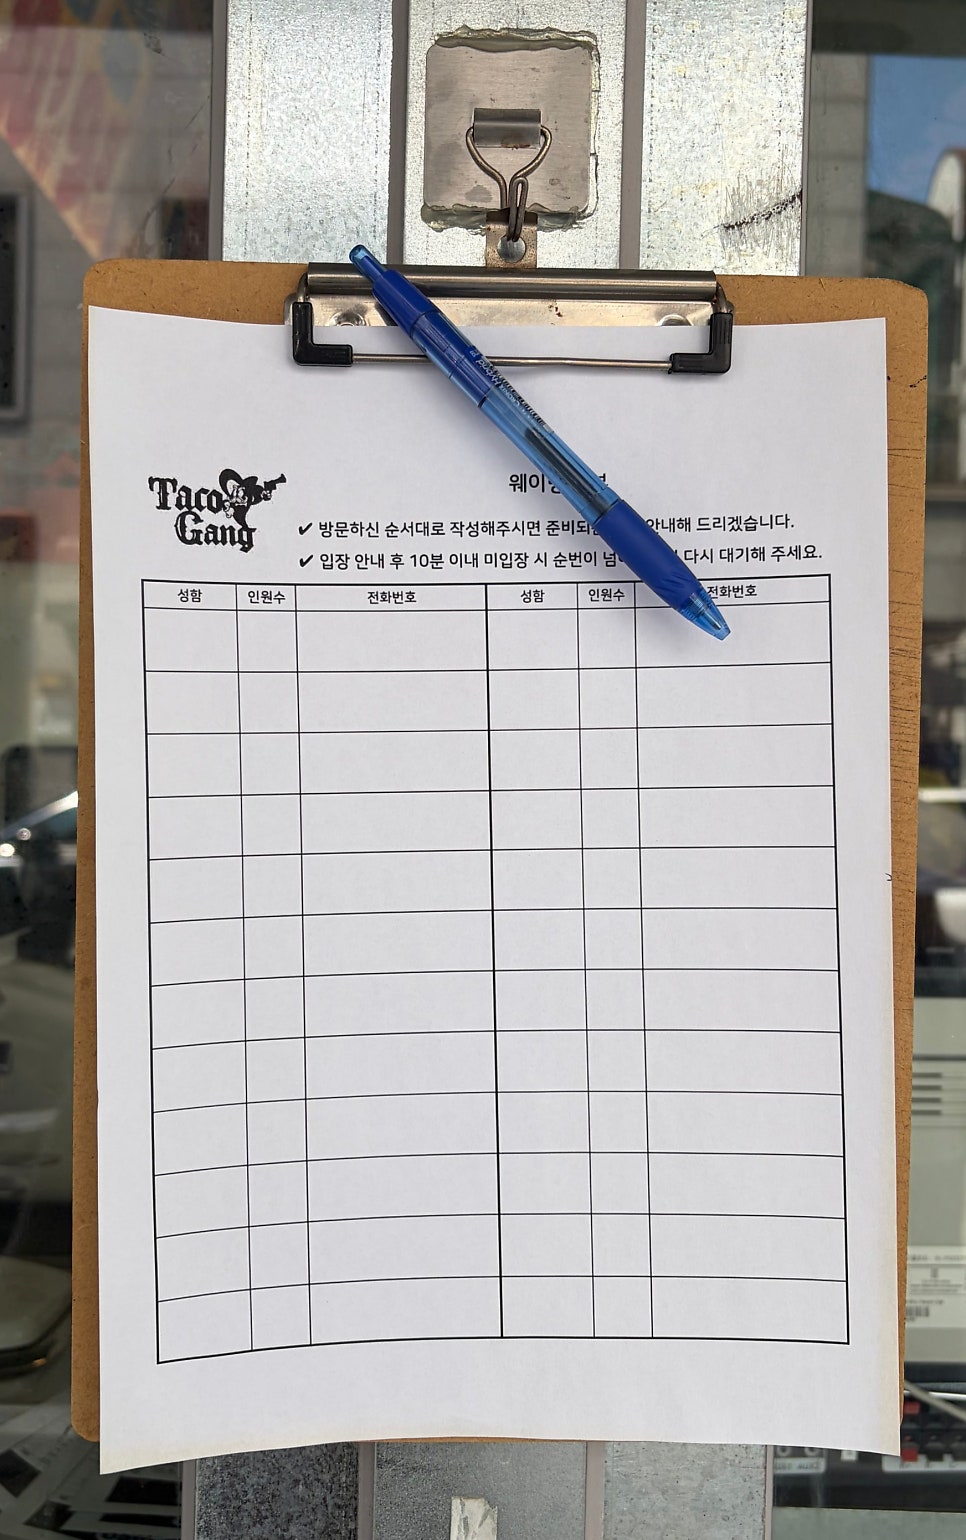 Taco
Gang
✔ 방문하신 순서대로 작성해주시면 안내해 드리겠습니다.
✔ 입장 안내 후 10분 이내 미입장 시 순번이 다시 대기해 주세요.
성함 인원수 전화번호 성함 인원수 전화번호